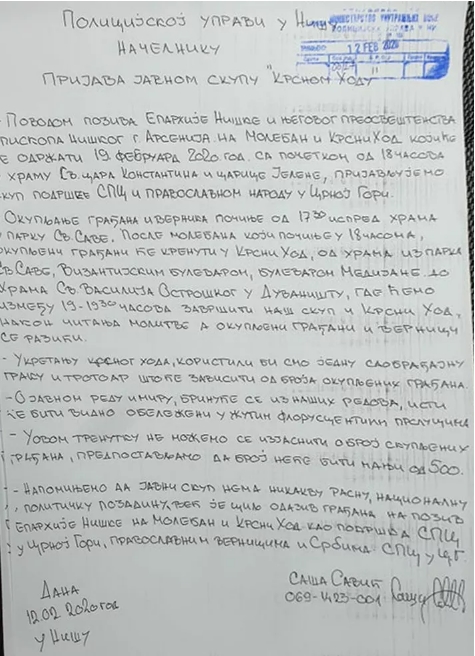 Полицијској управи у Нишу
Начелнику
МИНИСТАРСТВО УНУТРАШЊИХ
12 FEB 2020
Пријава јавном скупу "Крсном Ходу"
- Поводом позива Епархије Нишке и његовог преосвештенства
епископа Нишког г. Арсенија на Молебан и Крсни Ход који ће
се одржати 19. фебруара 2020. год. са почетком од 18 часова
у храму Св. цара Константина и царице Јелене, пријављујемо
скуп подршке СПЦ и православном народу у Црној Гори.
- Окупљање грађана и верника почиње од 17 30 испред храма
у парку Св. Саве. После молебана који почиње у 18 часова,
окупљени грађани ће кренути у Крсни Ход, од храма из парка
Св. Саве, Византијским булеваром, булеваром Медијане до
храма Св. Василија Острошког у Дуваништу, где ћемо
између 19-19 30 часова завршити наш скуп и Крсни Ход,
након читања молитве а окупљени грађани и верници
се разићи.
- У кретању крсног хода, користили би смо једну саобраћајну
траку и тротоар што ће зависити од броја окупљених грађана.
- О јавном реду и миру, бринуће се из наших редова, исти
ће бити видно обележени у жутим флоросцентним прслуцима
- У овом тренутку не можемо се изјаснити о број скупљених
грађана, предпостављамо да број неће бити мањи од 500.
- Напомињемо да јавни скуп нема никакву расну, националну
, политичку позадину, већ је циљ одазив грађана на позив
Епархије Нишке на Молебан и Крсни Ход као подршка СПЦ
у Црној Гори, православним верницима и Србима СПЦ у ЦГ.
Дана
12.02.2020 год
у Нишу
Саша Савић
069-1423-001